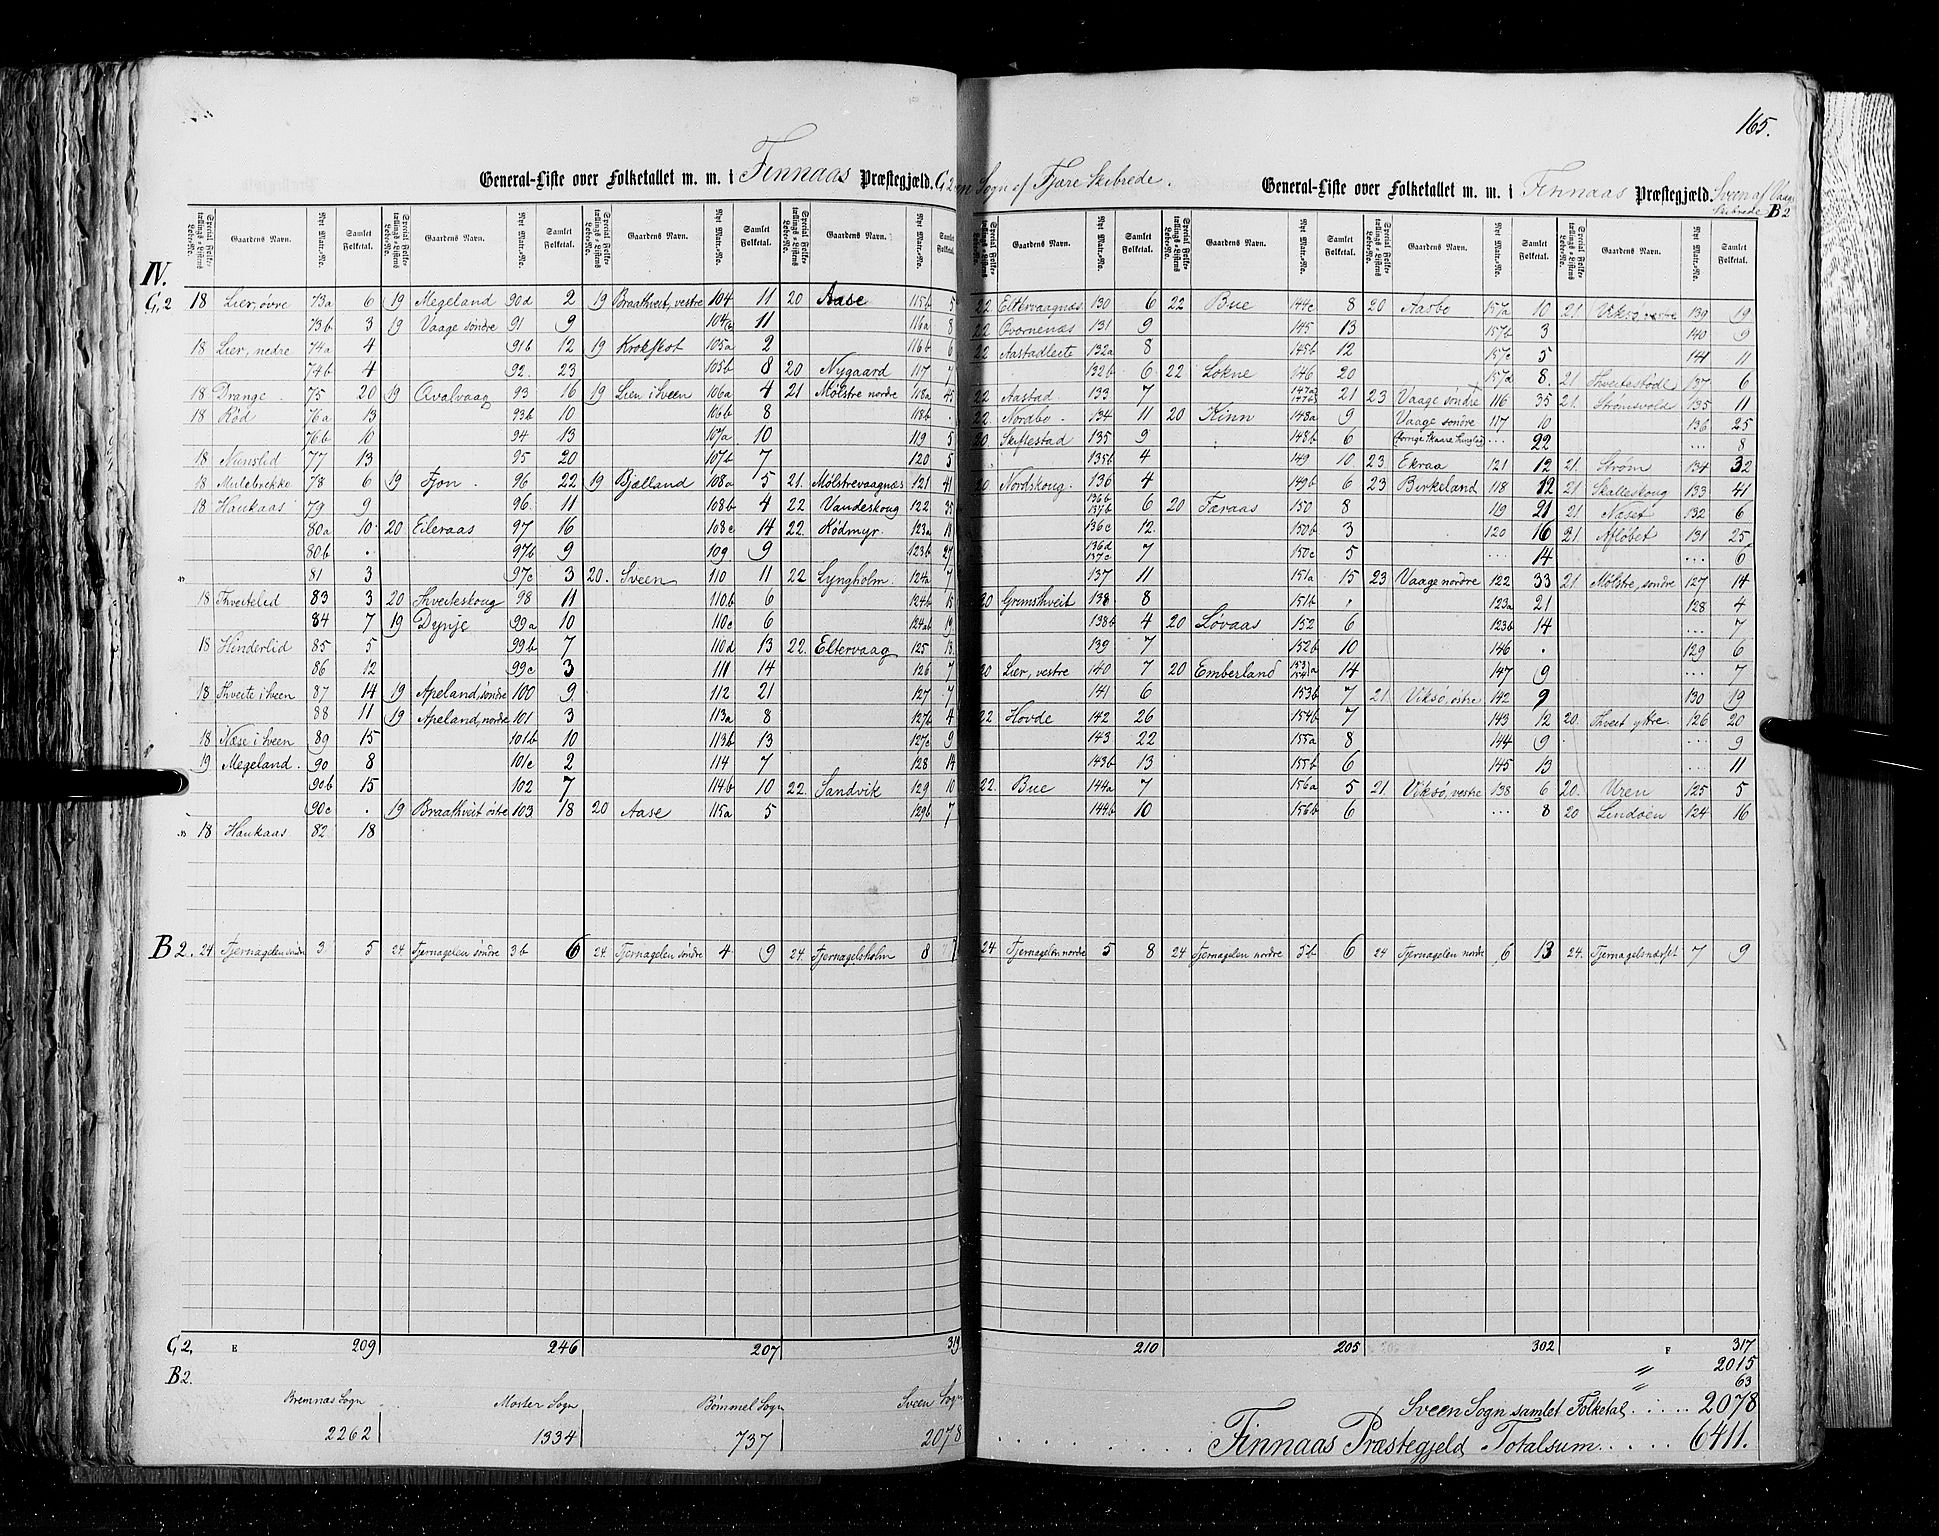 165.
General-Liste over Folketallet m. m. i Finnaas Præstegjæld. G.2
Sogn af Fjære Skibrede.
General-Liste over Folketallet m. m. i Finnaas Præstegjæld. Sveen af
Skibrede B2
Special Folketællings-Listens Løbe-No. Gaardens Navn. Nyt Matr.-No. Samlet Folketal. Special Folketællings-Listens Løbe-No. Gaardens Navn. Nyt Matr.-No. Samlet Folketal. Special Folketællings-Listens Løbe-No. Gaardens Navn. Nyt Matr.-No. Samlet Folketal. Special Folketællings-Listens Løbe-No. Gaardens Navn. Nyt Matr.-No. Samlet Folketal.
Special Folketællings-Listens Løbe-No. Gaardens Navn. Nyt Matr.-No. Samlet Folketal. Special Folketællings-Listens Løbe-No. Gaardens Navn. Nyt Matr.-No. Samlet Folketal. Special Folketællings-Listens Løbe-No. Gaardens Navn. Nyt Matr.-No. Samlet Folketal. Special Folketællings-Listens Løbe-No. Gaardens Navn. Nyt Matr.-No. Samlet Folketal.
IV.
G,2 18 Lier, øvre 73a 6 19 Megeland 90d 2 19 Braathveit, vestre 104 11 20 Aase 115b 5
73b 3 19 Vaage søndre 91 9 104b 11 116a 8
18 Lier, nedre 74a 4 91b 12 19 Krokskot 105a 2 116b 6
74b 4 92. 23 105b 8 20 Nygaard 117 7
18 Drange. 75 20 19 Qvalvaag 93 16 19 Lien i Sveen 106a 4 21 Mølstre nordre 118a 45
18 Rød 76a 13 93b 10 106b 8 118b .
76b 10 94 13 107a 10 119 5
18 Nunslid 77 13 95 20 107b 7 120 5
18 Midebrekke 78 6 19 Fjon. 96 22 19 Bjælland 108a 5 21. Mølstrevaagnæs 121 41
18 Haukaas 79 9 96. 11 108b 4 22 Vandeskoug 122 35
80a 10 20 Eileraas 97 16 108c 14 22. Rødmyr. 123a 18
80b . 97b 9 109 9 123b 27
" 81 3 97c 3 20. Sveen 110 11 22 Lyngholm. 124a 7
18 Thveitelid 83 3 20 Thveiteskoug 98 11 110b 6 124b 15
84 7 19 Dynje 99a 10 110c 6 124ab 19
18 Hinderlid 85 5 99b 7 110d 13 22. Eltervaag 125 13
86 12 99c 3 111 14 126 7
18 Thveite i Sveen 87 14 19 Apeland, søndre 100 9 112 21 127 7
88 11 19 Apeland, nordre 101 3 113a 8 127b 4
18 Næse i Sveen 89 15 101b 10 113b 13 127c 9
19 Megeland. 90 8 101c 2 114 7 128 14
90b 15 102 7 114b 10 22. Sandvik 129 10
90c . 19 Braathveit östre 103 18 20 Aase 115a 5 129b 7
" 18 Haukaas 82 18
B 2. 24 Tjernagelen søndre 3 5 24 Tjernagelen søndre 3b 6 24. Tjernagelen søndre 4 9 24. Tjernagelsholm 8 7
22 Eltervaagnæs 130 6 22 Bue 144c 8 20 Aasbo 157a 10 21 Viksø, vestre 139 19
22 Ovornenæs 131 9 145 13 157b 3 140 9
22 Aastadleete 132a 8 145b 12 157c 5 141 11
132b 6 22 Løkne 146 20 157d 8. 21 Thveitestöde 137 6
22 Aastad 133 7 147a 147b 21 23 Vaage søndre 116 35 21. Strømsvold 135 11
22 Nordbo. 134 11 20 Kinn 148a 9 Vaage søndre 117 10 136 25
20 Skiftestad 135 9 148b 6 ... 22 ... 8
135b 4 149 10 23 Ekraa 121 12 21. Strøm 134 32
20 Nordskoug. 136 4 149b 6 23 Birkeland 118 12 21 Skalleskoug 133 41
136b 137b 6 20 Færaas 150 8 119 21 21. Næset 132 6
136c 12. 150b 3 120 16 21. Afløbet 131 25
136d 137c 7 150c 5 .... 14 ... 6
137 11 151a 15 23 Vaage nordre 122 33 21 Mølstre, søndre 127 14
20 Gremsthveit 138. 8 151b . 123a 21 128 4
138b 4 20 Løvaas 152 6 123b 14 ... 7
139 7 152b 10 146 . 129 6
20 Lier, vestre 140 7 20 Emberland 153a 154a 14 147 9 7
141 6 153b 7 21. Viksø, östre 142 9 130 19
22 Hovde 142 26 154b 7 143 12 20. Thveit ytre. 126 20
143 22 155a 8 144 9 ... 9
143b 13 155b 6 145 13 ... 11
22. Bue 144a 7 156a 5 21. Viksø, vestre 138 6 20. Uren 125 5
144b 10 156b 6 ... 8 20 Lindøen 124 16
24 Tjernagelen nordre 5 8 24 Tjernagelen nordre 5b 6 24 Tjernagelen nordre 6 13 24. Tjernagelsnæset 7 9
G2, E 209 246 207 313
210 205 302 F 317
B2. " 2015
" 63
Bremnas Sogn Moster Sogn Bømmel Sogn Sveen Sogn
Sveen Sogn samlet Folketal ..... 2078
2262 1334 737 2078
Finnaas Præstegjeld Totalsum ..... 6411.